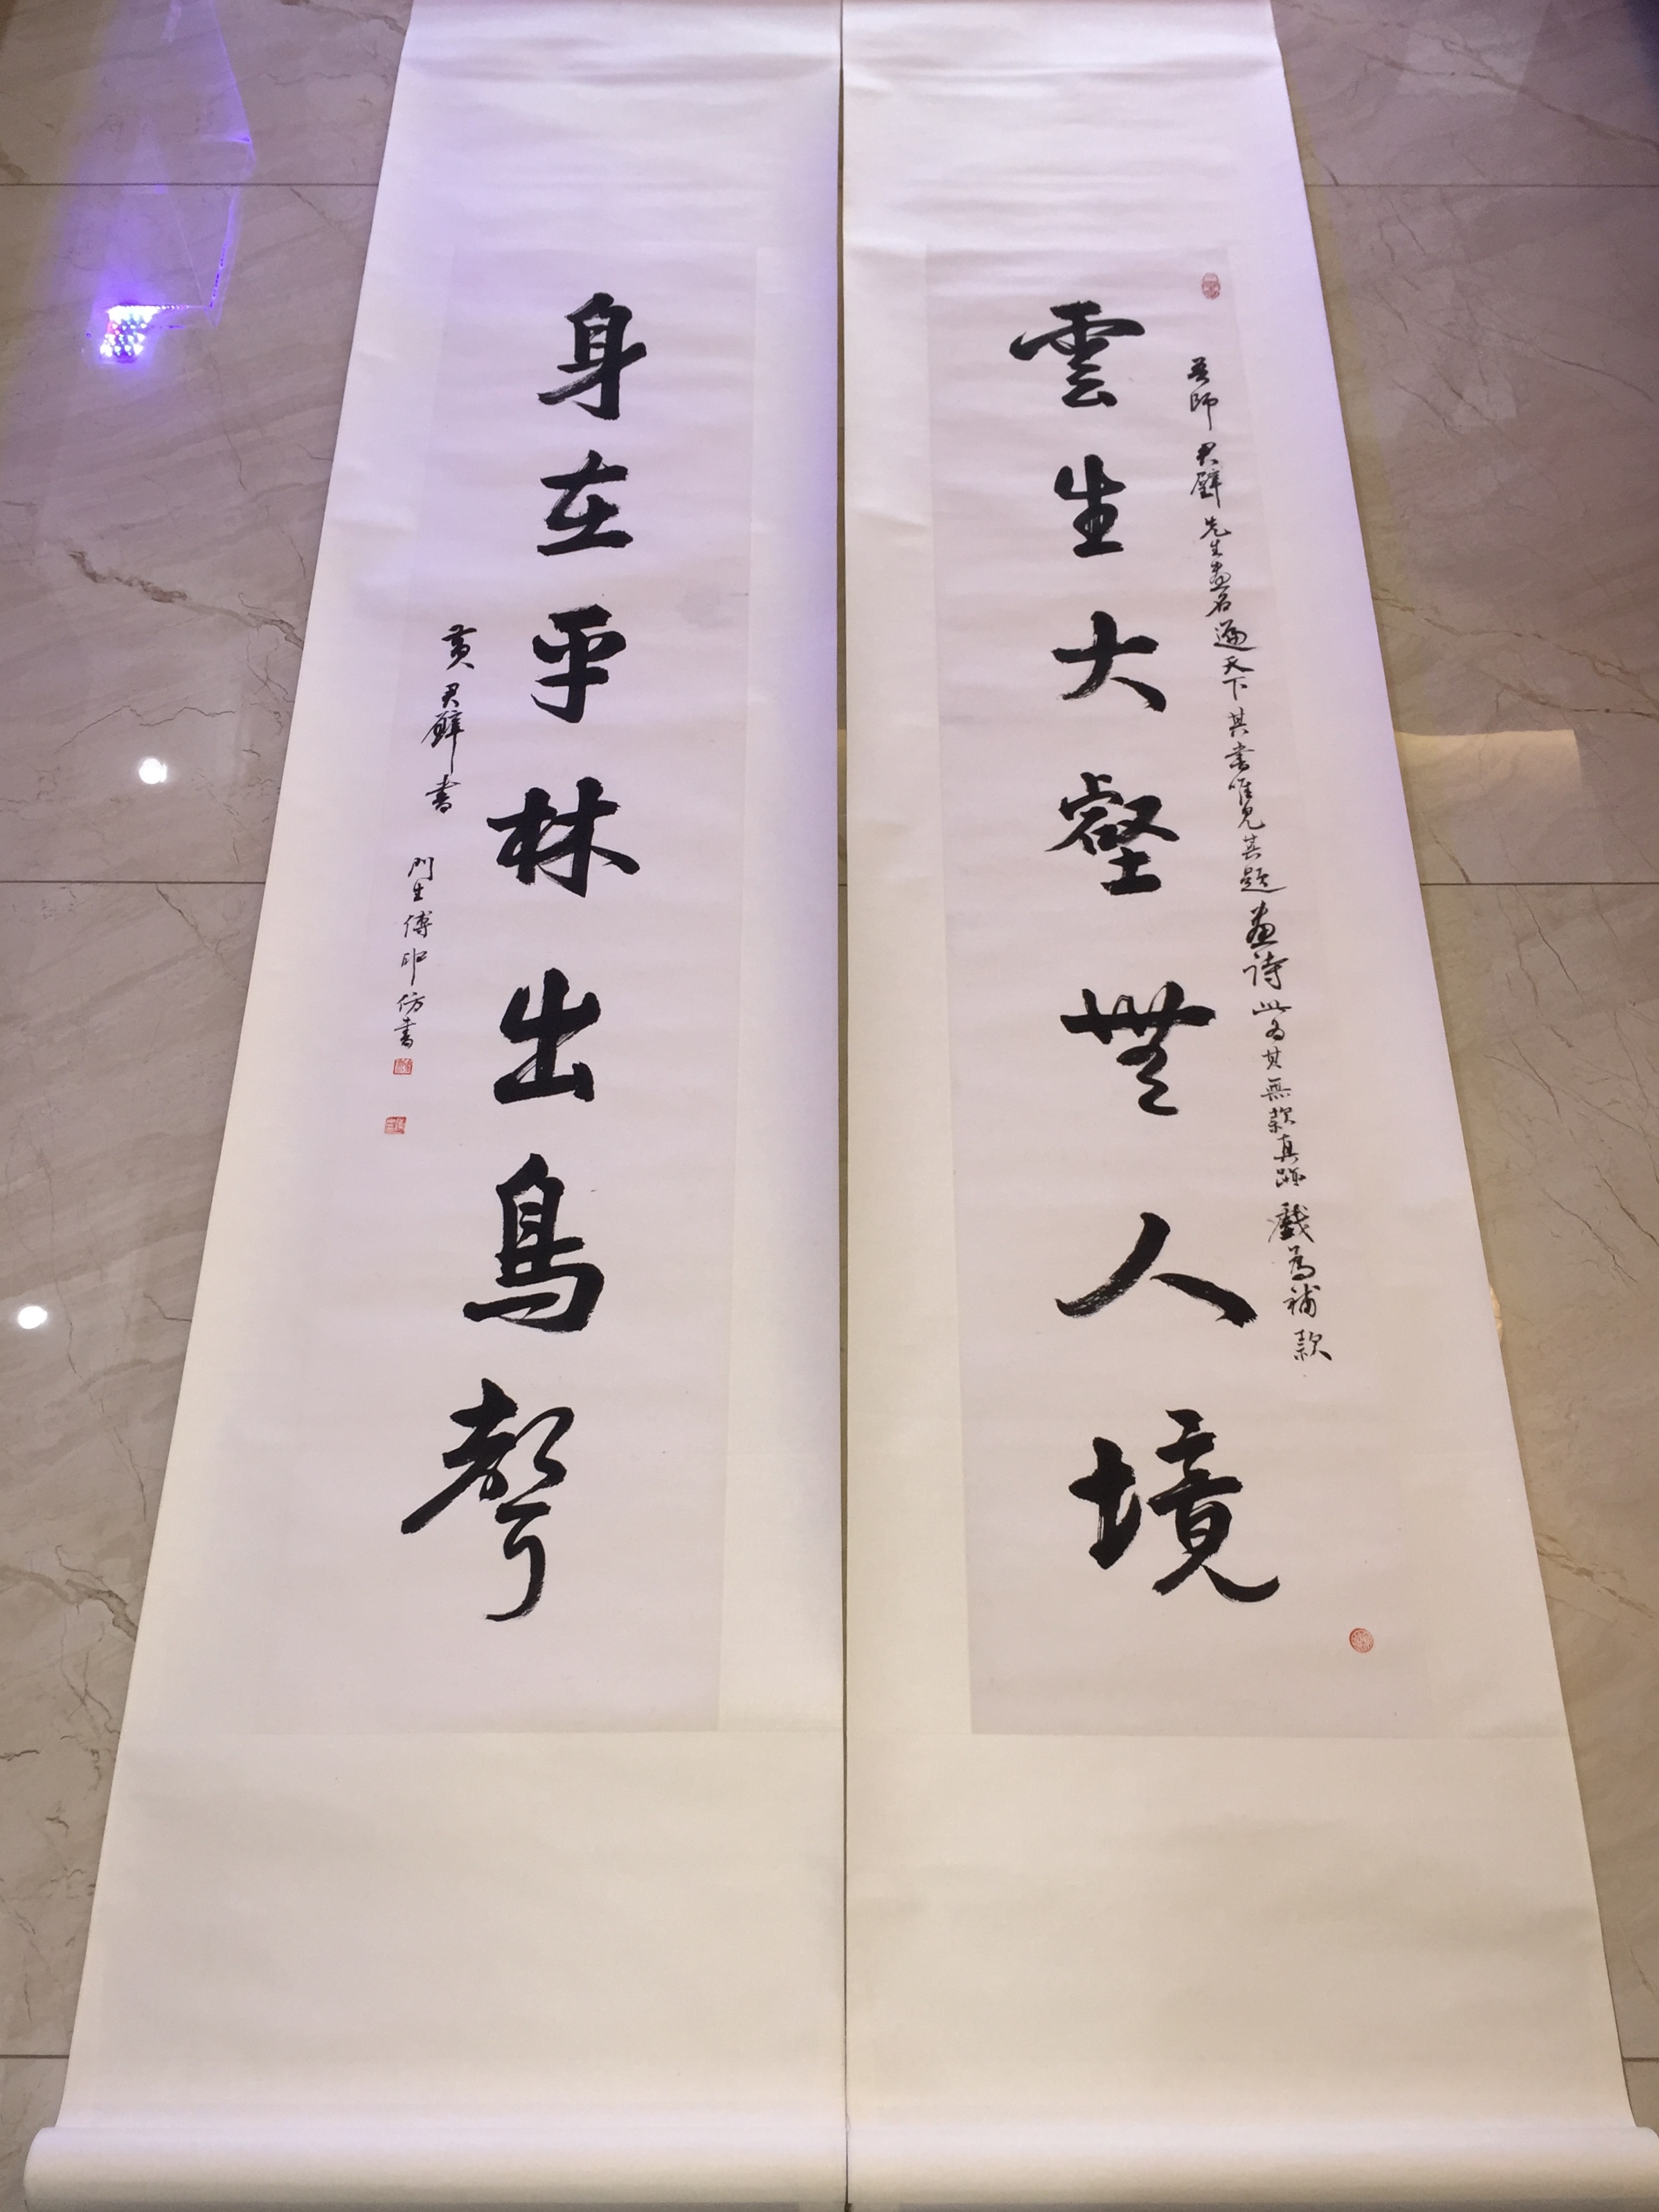 吾師君璧先生畫名遍天下其書唯見其題畫詩此為其無款真跡戲為補款
雲生大壑無人境
身在平林出鳥聲
黃君璧書
門生傅申仿書